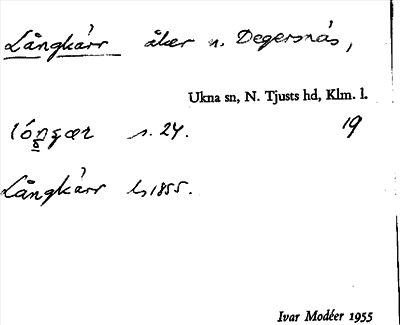 Långkärr åker n. Degersnäs,
Ukna sn, N. Tjusts hd, Klm. l.
lóngær s. 24. 19
Långkärr ls 1855.
Ivar Modéer 1955